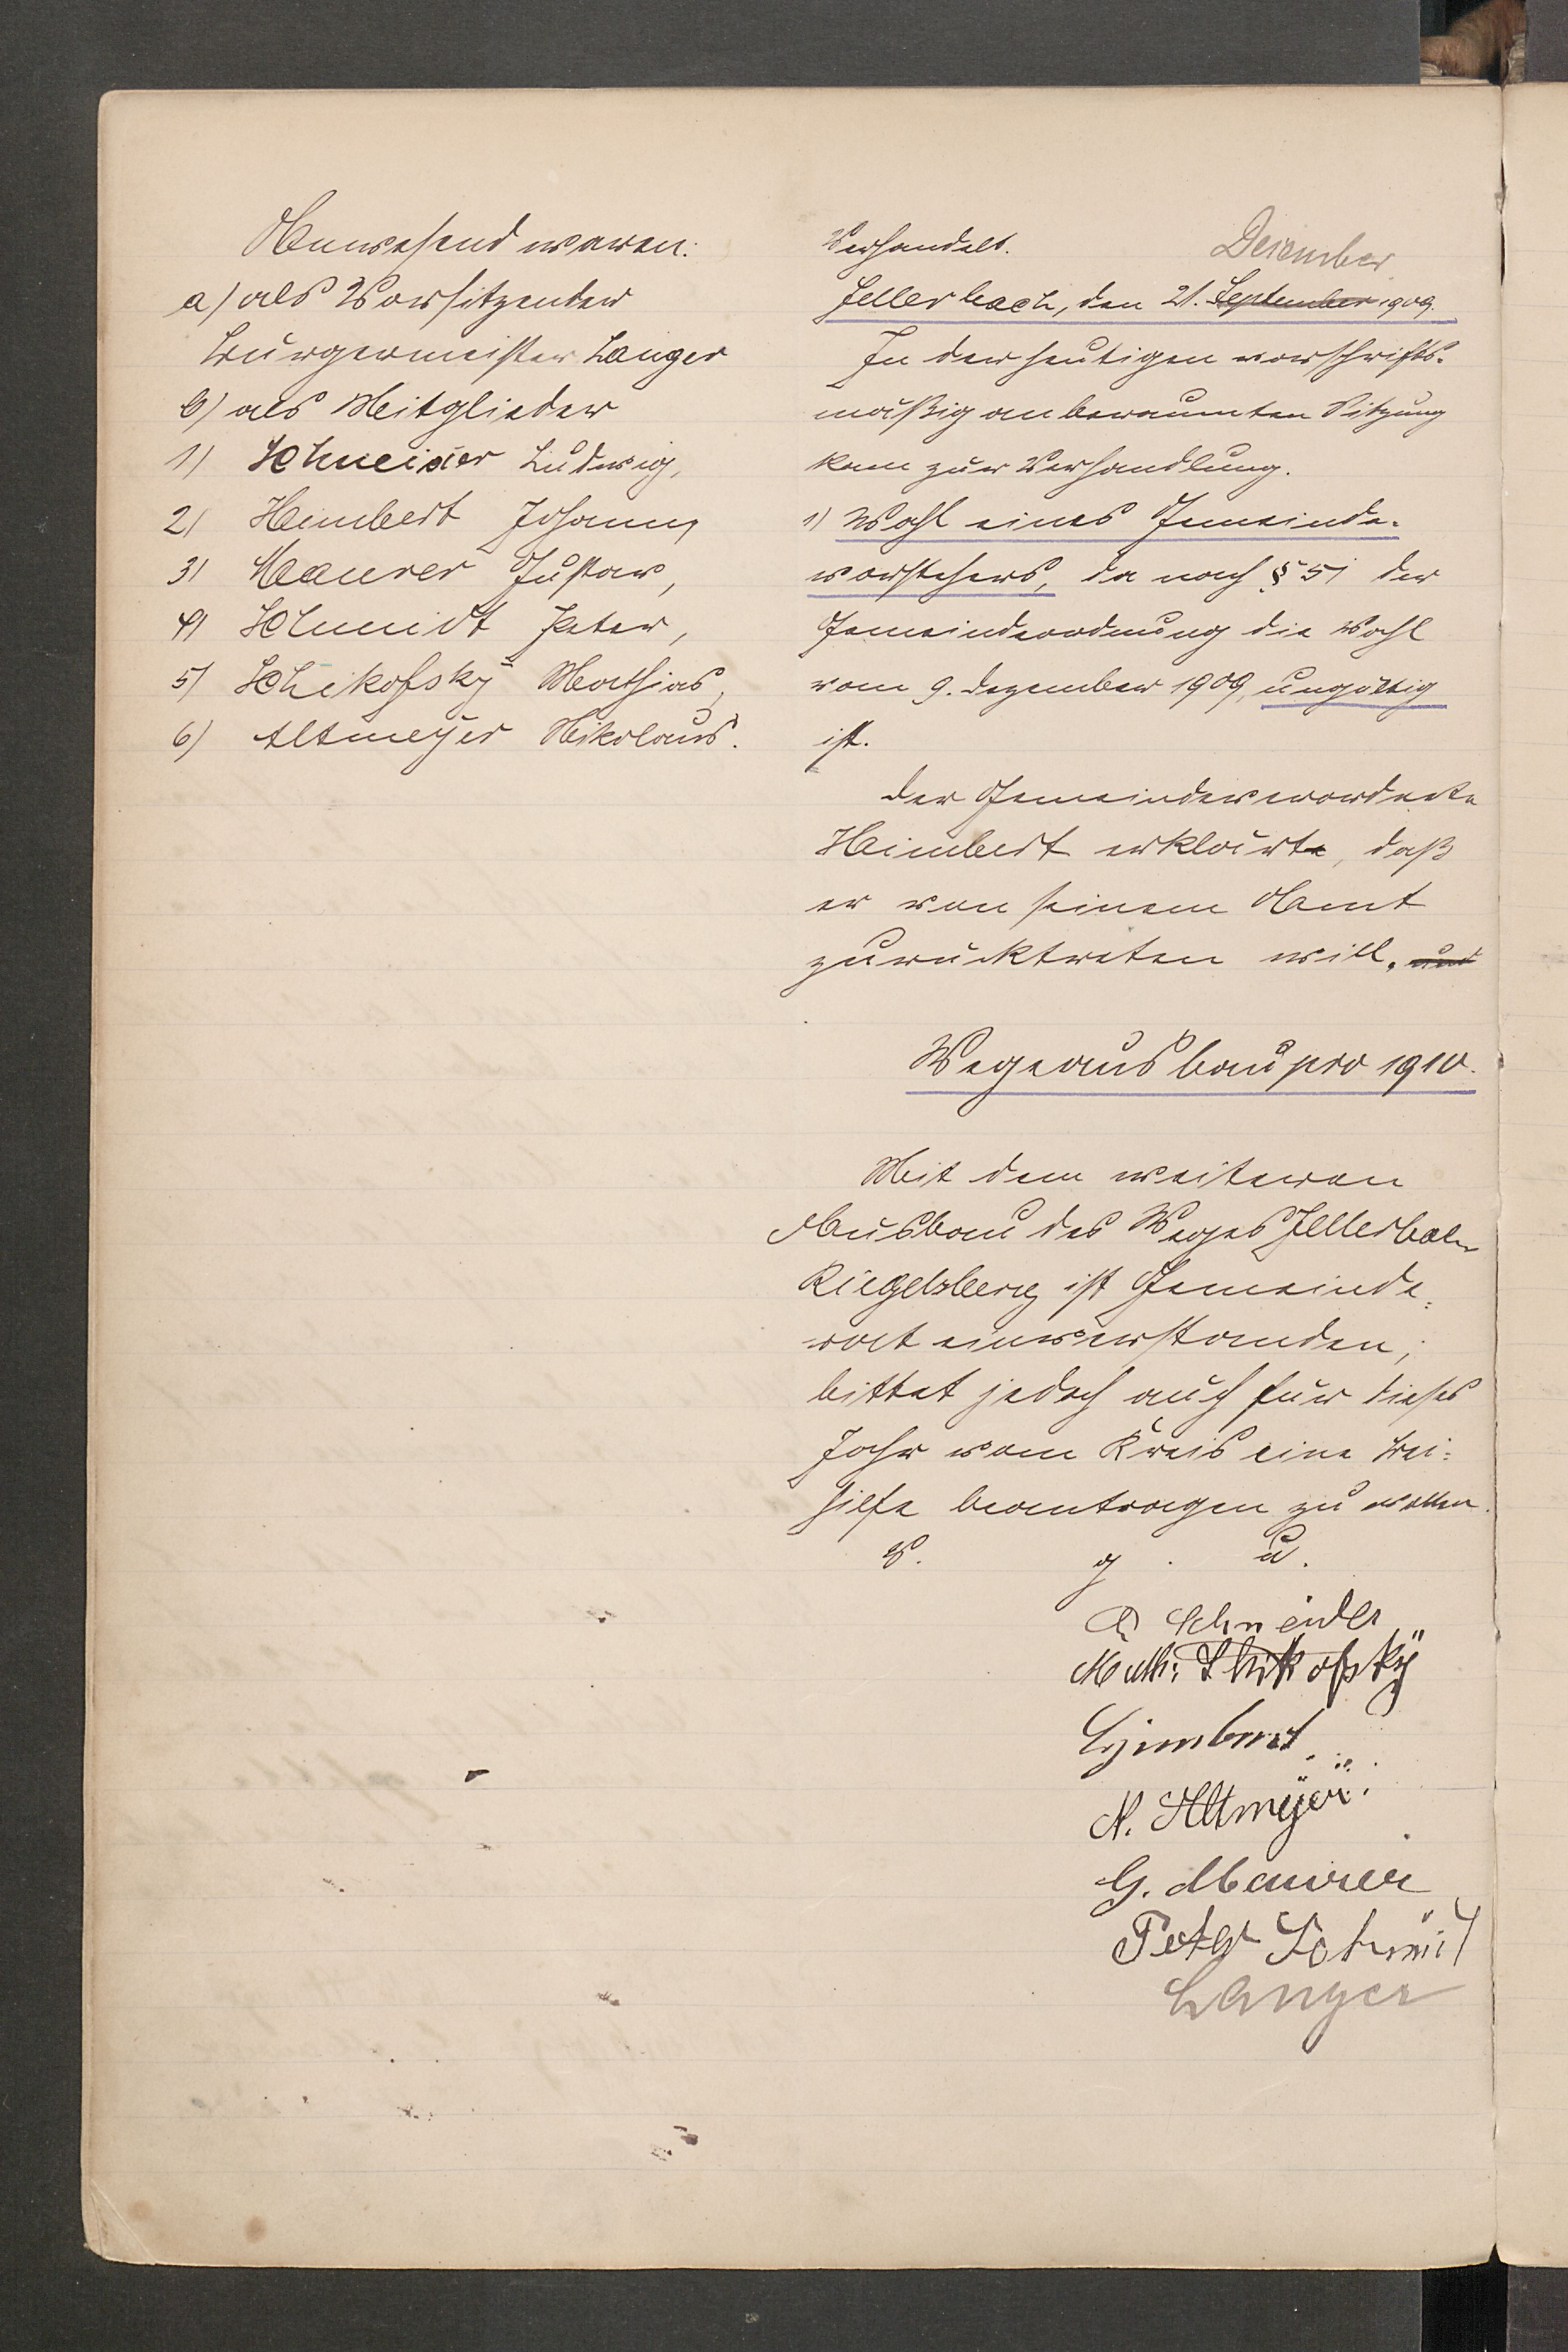 Anwesend waren:
a) als Vorsitzender
Bürgermeister Langer
b) als Mitglieder
1) Schneider Ludwig,
2) Heimbert Johann,
3) Maurer Gustav,
4) Schmidt Peter,
5) Schikofsky Mathias,
6) Altmeyer Nikolaus.
Verhandelt.
Dezember
Güllerbach, den 21. September 1909.
In der heutigen vorschrifts-
mäßig anberaumten Sitzung
kam zur Verhandlung.
1) Wahl eines Gemeinde-
vorstehers, da nach § 51 der
Gemeindeordnung die Wahl
vom 9. Dezember 1909, ungültig
ist.
Der Gemeindeverordnete
Heimbert erklärte, daß
er von seinem Amt
zurücktreten will. und
Wegeausbau pro 1910.
Mit dem weiteren
Ausbau des Weges
Riegelsberg ist Gemeinde-
rat einverstanden;
bittet jedoch auch für dieses
Jahr vom Kreis eine Bei-
hilfe beantragen zu wollen.
V. g. u.
Schneider
Math: Schikofsky
Heimbert
N. Altmeyer
G. Maurer
Peter Schmit
Langer